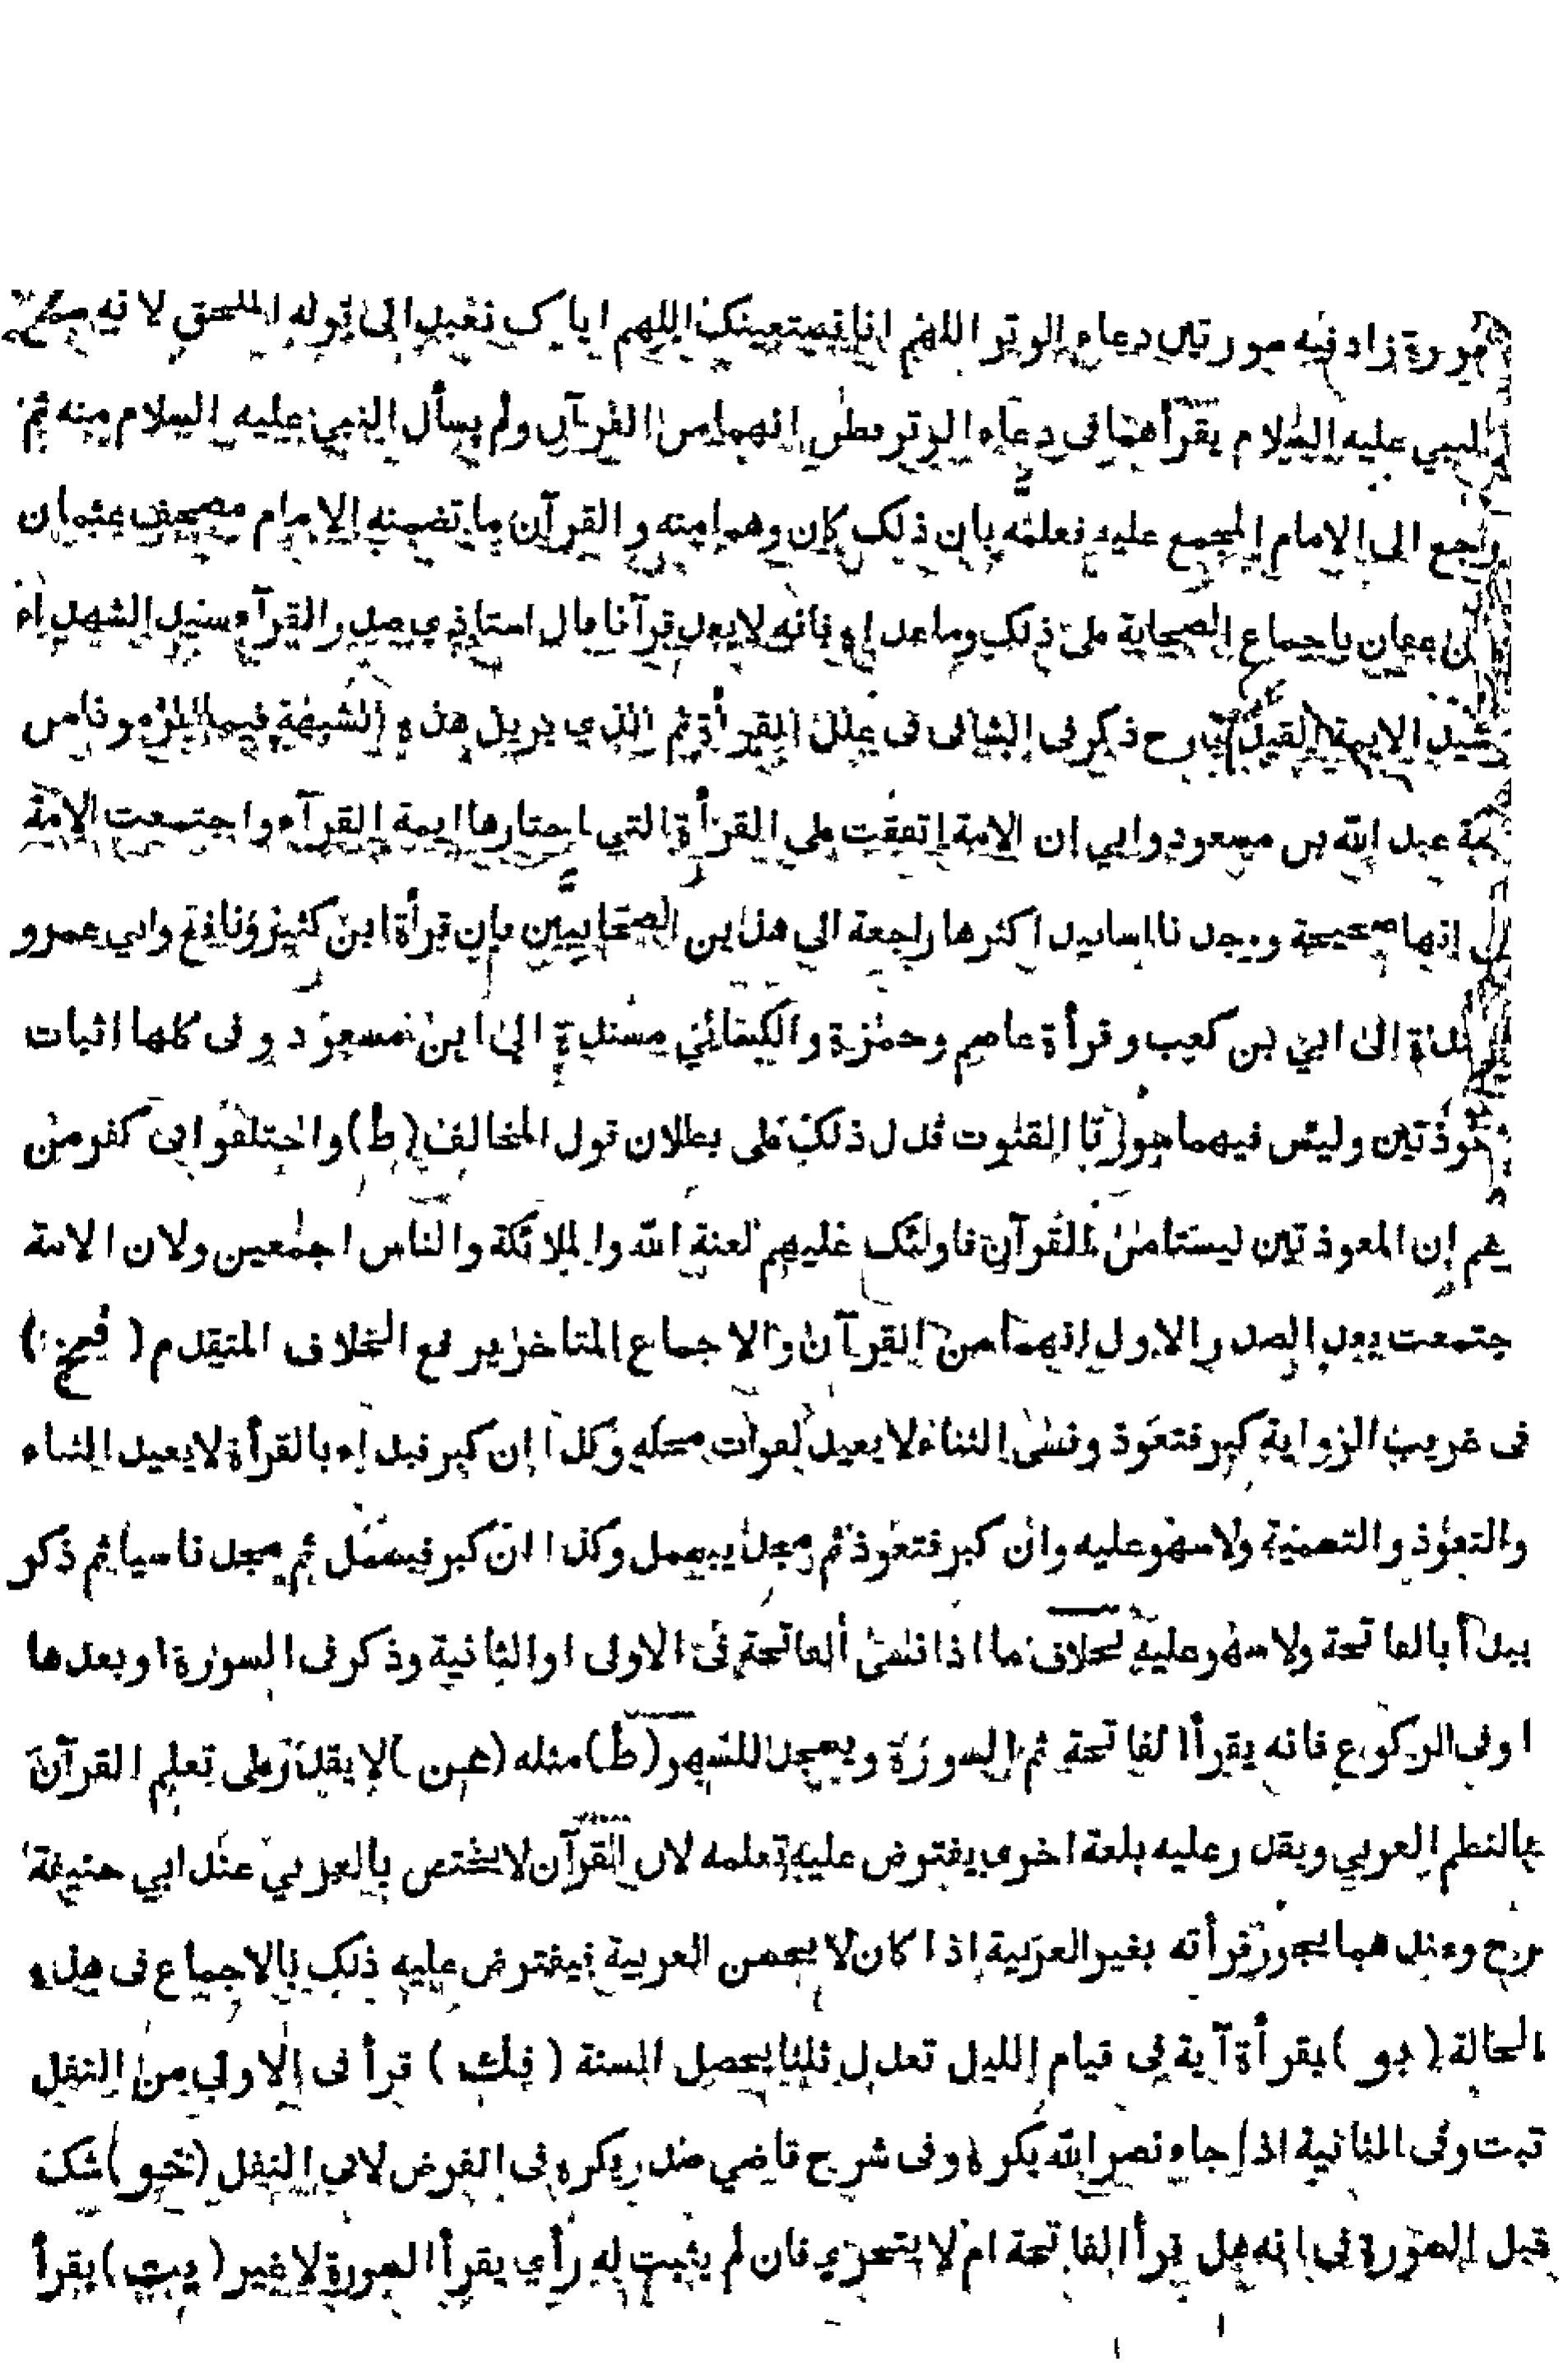 سورة زاد فيه سورتين دعاء الوتر اللهم انا نستعينك اللهم اياك نعبد الى قوله ملحق لانه سمع
النبي عليه السلام يقرأهما في دعاء الوتر فظن انهما من القرآن ولم يسأل النبي عليه السلام منه ثم
راجع الى الامام المجمع عليه فعلمه بان ذلك كان وهما منه والقرآن ما تضمنه الامام مصحف عثمان
بن عفان باجماع الصحابة على ذلك وما عداه فانه لا يعد قرآنا قال استاذي صدر القرآء سنيد الشهداء
رشيد الايمة القيدي رح ذكر في الشافي في علل القرأة ثم الذي يزيل هذه الشبهة فيما الزمونا من
جهة عبد الله بن مسعود وابي ان الامة اتفقت على القرأة التي اختارها ايمة القرآء واجتمعت الامة
على انها صحيحة ووجدنا اسانيد اكثرها راجعة الى هذين الصحابيين بان قرأة ابن كثير ونافع وابي عمرو
مسندة الى ابي بن كعب وقرأة عاصم وحمزة والكسائي مسندة الى ابن مسعود وفي كلها اثبات
المعوذتين وليس فيهما سورتا القنوت فدل ذلك على بطلان قول المخالف (ط) واختلفوا في كفر من
زعم ان المعوذتين ليستا من القرآن فاولئك عليهم لعنة الله والملائكة والناس اجمعين ولان الامة
اجتمعت بعد الصدر الاول انهما من القرآن والاجماع المتاخر يرفع الخلاف المتقدم ( )
في غريب الرواية كبر فتعوذ ونسي الثناء لا يعيد لفوات محله وكذا ان كبر فبدا بالقرأة لا يعيد الثناء
والتعوذ والتسمية ولا سهو عليه وان كبر فتعوذ ثم سجد يبسمل وكذا ان كبر فبسمل ثم سجد ناسيا ثم ذكر
يبدأ بالفاتحة ولا سهو عليه بخلاف ما اذا نسي الفاتحة في الاولى او الثانية وذكر في السورة او بعدها
او في الركوع فانه يقرأ الفاتحة ثم السورة ويسجد للسهو (ط) مثله (عن) لا يقدر على تعلم القرآن
بالنظم العربي ويقدر عليه بلغة اخرى يفترض عليه تعلمه لان القرآن لا يختص بالعربي عند ابي حنيفة
رح وعندهما يجوز قرأته بغير العربية اذا كان لا يحسن العربية فيفترض عليه ذلك بالاجماع في هذه
الحالة (بو) يقرأة آية في قيام الليل تعدل ثلثا يحصل السنة (فك) قرأ في الاولى من النفل
تبت وفي الثانية اذا جاء نصر الله يكره وفي شرح قاضي صدر يكره في الفرض لا في النفل ( ) شك
قبل السورة في انه هل قرأ الفاتحة ام لا يتحرى فان لم يثبت له رأي يقرأ السورة لا غير ( ) يقرأ